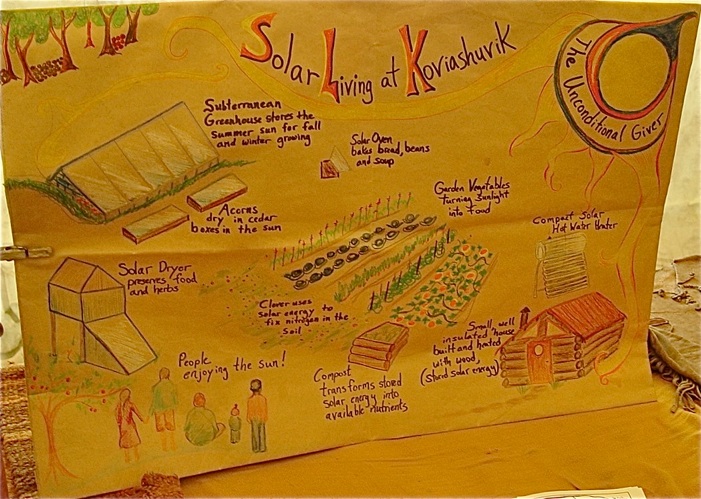 Solar Living at Koviashuvik
The Unconditional Giver
Subterranean
Greenhouse stores the
summer sun for fall
and winter growing
Solar Oven
bakes bread, beans
and soup
Garden Vegetables
turning sunlight
into food
Acorns
dry in cedar
boxes in the sun
Compact Solar
Hot Water Heater
Solar Dryer
preserves food
and herbs
Clover uses
solar energy to
fix nitrogen in the
soil
Small, well
insulated house
built and heated
with wood,
(stored solar energy)
People
enjoying the sun!
Compost
transforms stored
solar energy into
available nutrients